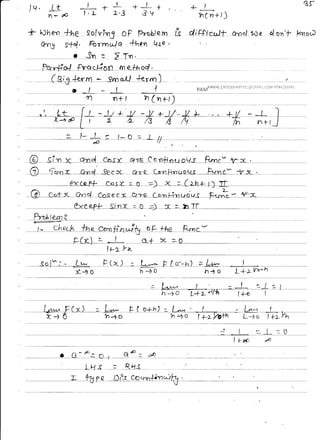 35
14. Lt n→∞ 1/1·2 + 1/2·3 + 1/3·4 + . . . + 1/n(n+1)
* When the solving OF Problem is difficult and we don't know
any std. Formula then use.
• Sn = Σ Tn.
Partial Fraction method.
(Big term - small term)
• 1/n - 1/n+1 = 1/n(n+1)
∴ Lt [ 1/1 - 1/2 + 1/2 - 1/3 + 1/3 - 1/4 . . . + 1/n - 1/n+1 ]
= 1 - 1/∞ = 1 - 0 = 1 //
⑥ Sin x and Cos x are Continuous Func ∀ x.
⑦ Tan x and Sec x are Continuous Func ∀ x.
except Cos x = 0 ⇒ x = (2n+1) π/2
⑧ Cot x and Cosec x are Continuous Func ∀ x
except Sin x = 0 ⇒ x = nπ
Problems:
1. Check the Continuity OF the Func
F(x) = 1/1+2^1/x at x = 0
sol^n:- Lim x→0 F(x) = Lim h→0 F(0-h) = Lim h→0 1/1+2^1/0-h
= Lim h→0 1/1+2^-1/h = 1/1+0 = 1/1 = 1
Lim x→0 F(x) = Lim h→0 F(0+h) = Lim h→0 1/1+2^1/0+h = Lim 1/1+2^1/h
= 1/1+∞ = 1/∞ = 0
• a^-∞ = 0, a^∞ = ∞
LHS = RHS
I type Discountinuity.